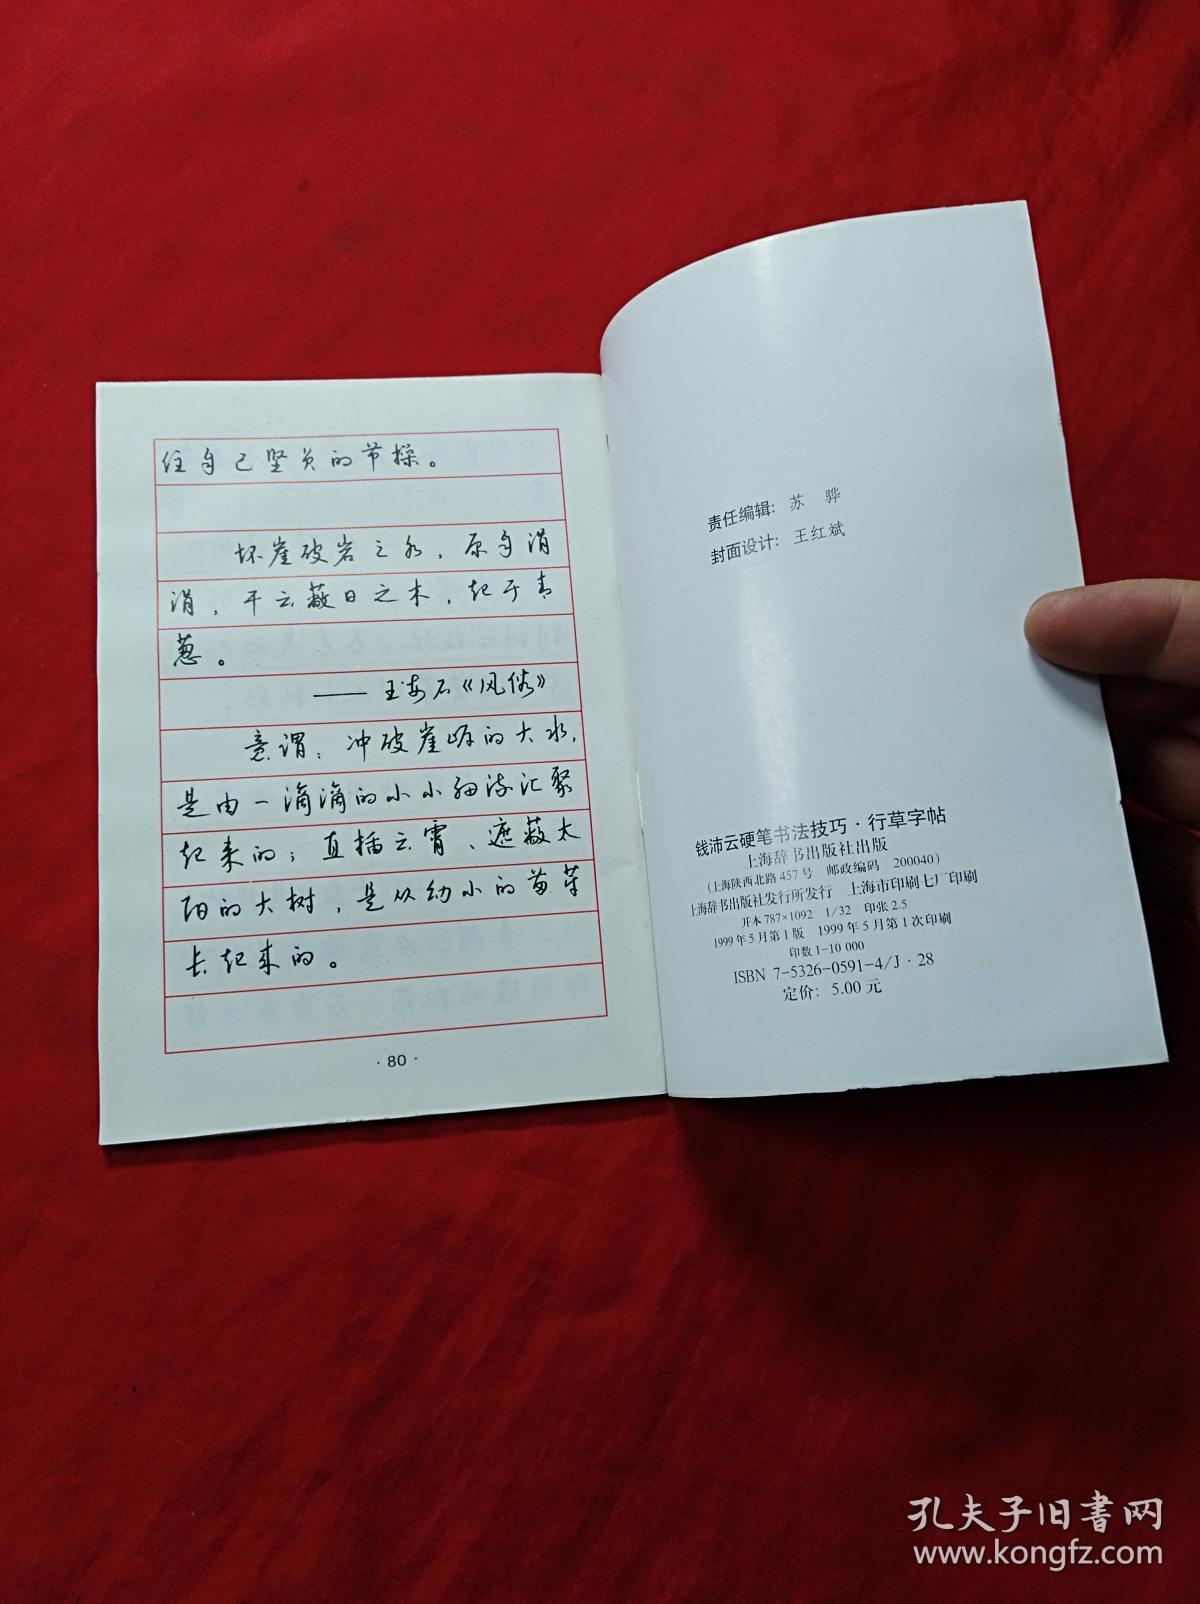 住自己坚贞的节操。
坏崖破岩之水，原自涓
涓，干云蔽日之木，起于青
葱。
——王安石《风俗》
意谓：冲破崖岸的大水，
是由一滴滴的小小细流汇聚
起来的；直插云霄、遮蔽太
阳的大树，是从幼小的苗芽
长起来的。
·80·
责任编辑：苏 骅
封面设计：王红斌
钱沛云硬笔书法技巧·行草字帖
上海辞书出版社出版
（上海陕西北路457号 邮政编码 200040）
上海辞书出版社发行所发行 上海市印刷七厂印刷
开本787×1092 1/32 印张2.5
1999年5月第1版 1999年5月第1次印刷
印数1-10 000
ISBN 7-5326-0591-4/J·28
定价：5.00元
孔夫子旧书网
www.kongfz.com